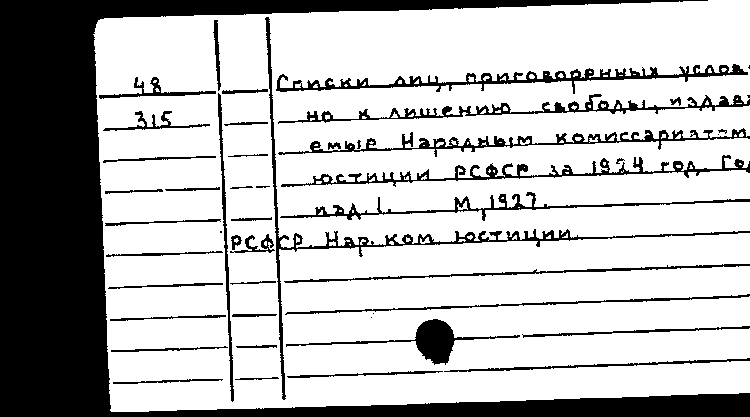 48 Списки лиц, приговоренных услов
315 но к лишению свободы, издава
емые Народным комиссариатом
юстиции РСФСР за 1924 год. Год
изд. 1. М., 1927.
РСФСР. Нар. ком. юстиции.